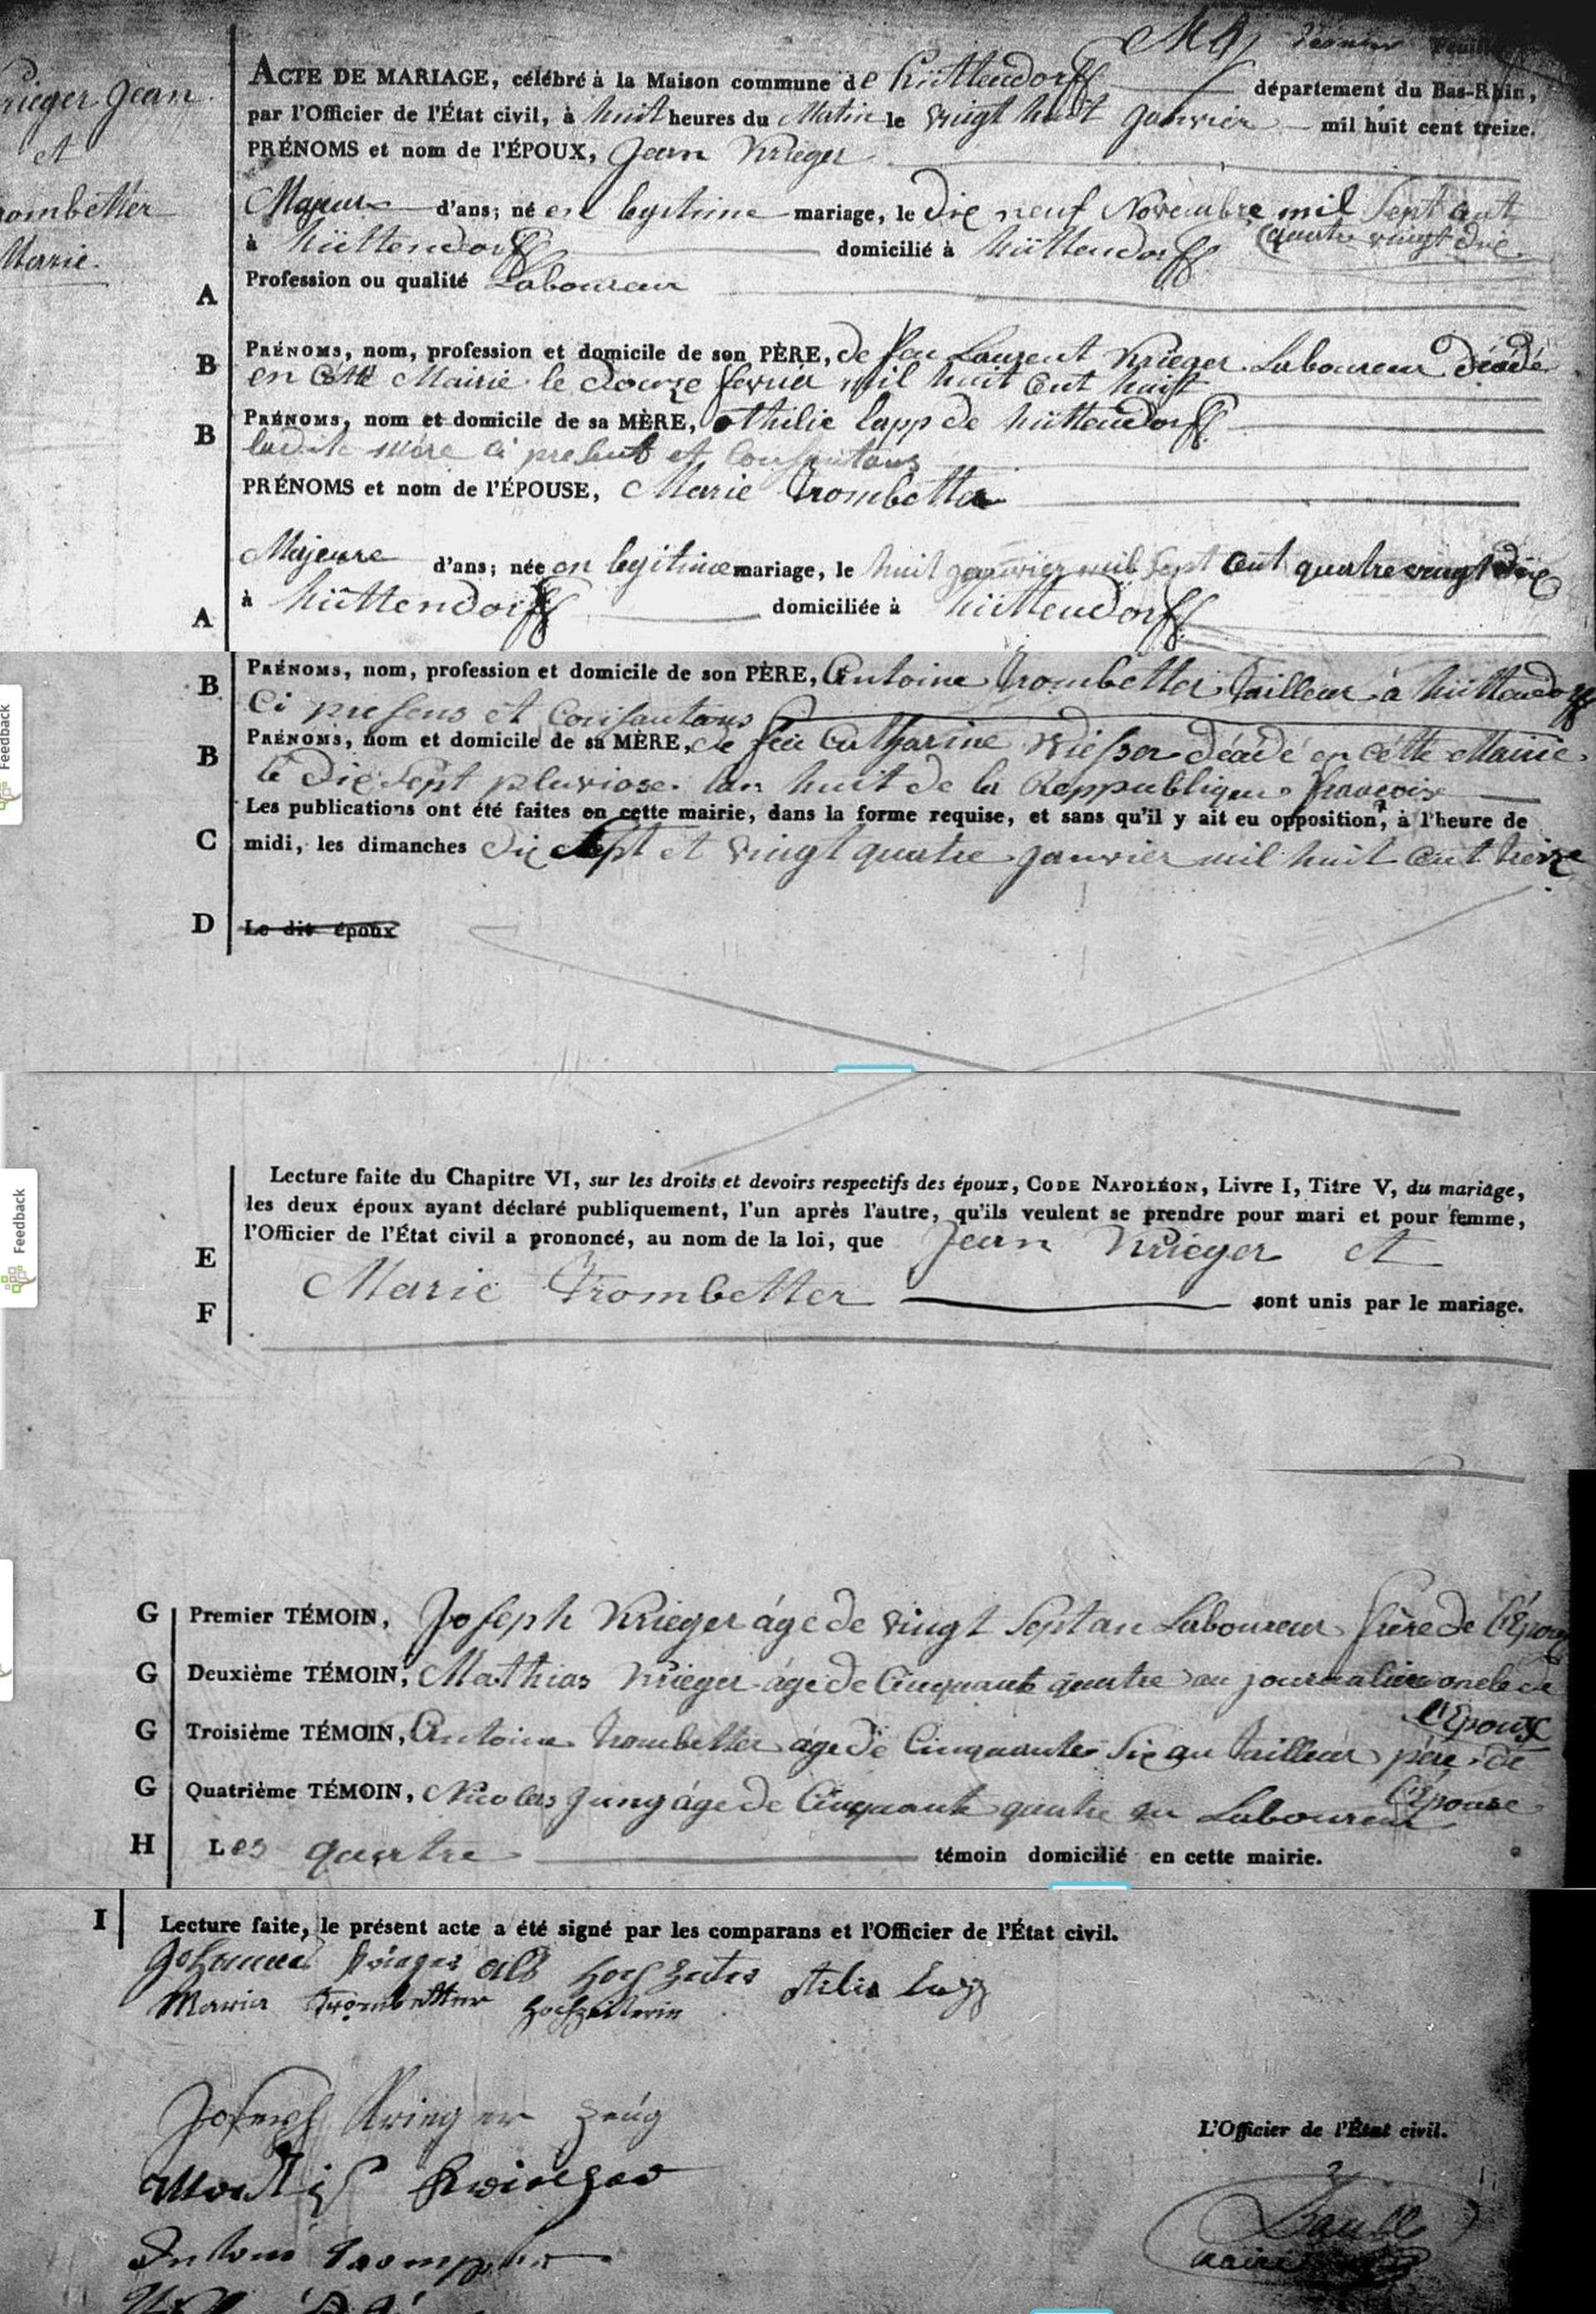 rieger Jean
et
rombetter
Marie.
ACTE DE MARIAGE, célébré à la Maison commune de hüttendorff département du Bas-Rhin,
par l'Officier de l'État civil, à huit heures du Matin le vingt huit Janvier mil huit cent treize.
PRÉNOMS et nom de l'ÉPOUX, Jean Krieger
Majeur d'ans; né en legitime mariage, le Dix neuf Novembre mil Sept Cent
quatre vingt Dix
à hüttendorff domicilié à hüttendorff
A Profession ou qualité Laboureur
B PRÉNOMS, nom, profession et domicile de son PÈRE, de feu Laurent Krieger Laboureur Décédé
en cette Mairie le Douze fevrier mil huit Cent huit
B PRÉNOMS, nom et domicile de sa MÈRE, othilie Lapp de hüttendorff
ladite mère ci present et Consentans
PRÉNOMS et nom de l'ÉPOUSE, Marie Trombetter
Majeure d'ans; née en legitime mariage, le huit janvier mil Sept Cent quatre vingt Dix
A à hüttendorff domiciliée à hüttendorff
B PRÉNOMS, nom, profession et domicile de son PÈRE, Antoine Trombetter Tailleur à hüttendorff
Ci presens et Consantans
B PRÉNOMS, nom et domicile de sa MÈRE, de feu Catharine décédé en cette Mairie
le Dix Sept pluviose lan huit de la Reppublique françoise
Les publications ont été faites en cette mairie, dans la forme requise, et sans qu'il y ait eu opposition, à l'heure de
C midi, les dimanches dix Sept et vingt quatre janvier mil huit Cent treize
D Le dit époux
Feedback
Lecture faite du Chapitre VI, sur les droits et devoirs respectifs des époux, CODE NAPOLÉON, Livre I, Titre V, du mariage,
les deux époux ayant déclaré publiquement, l'un après l'autre, qu'ils veulent se prendre pour mari et pour femme,
E l'Officier de l'État civil a prononcé, au nom de la loi, que Jean Krieger et
F Marie Trombetter sont unis par le mariage.
Feedback
G Premier TÉMOIN, Joseph Krieger âge de vingt Sept an Laboureur frère de l'Epoux
G Deuxième TÉMOIN, Mathias Krieger âge de Cinquante quatre an journalier oncle de
l'Epoux
G Troisième TÉMOIN, Antoine Trombetter âge de Cinquante Six an Tailleur père de
l'Epouse
G Quatrième TÉMOIN, Nicolas Jung âge de Cinquante quatre an Laboureur
H Les quatre témoin domicilié en cette mairie.
I Lecture faite, le présent acte a été signé par les comparans et l'Officier de l'État civil.
Johannes Krieger als Hochzeiter
Maria Trombetter Hochzeiterin
Joseph Krieger Zeug
L'Officier de l'État civil.